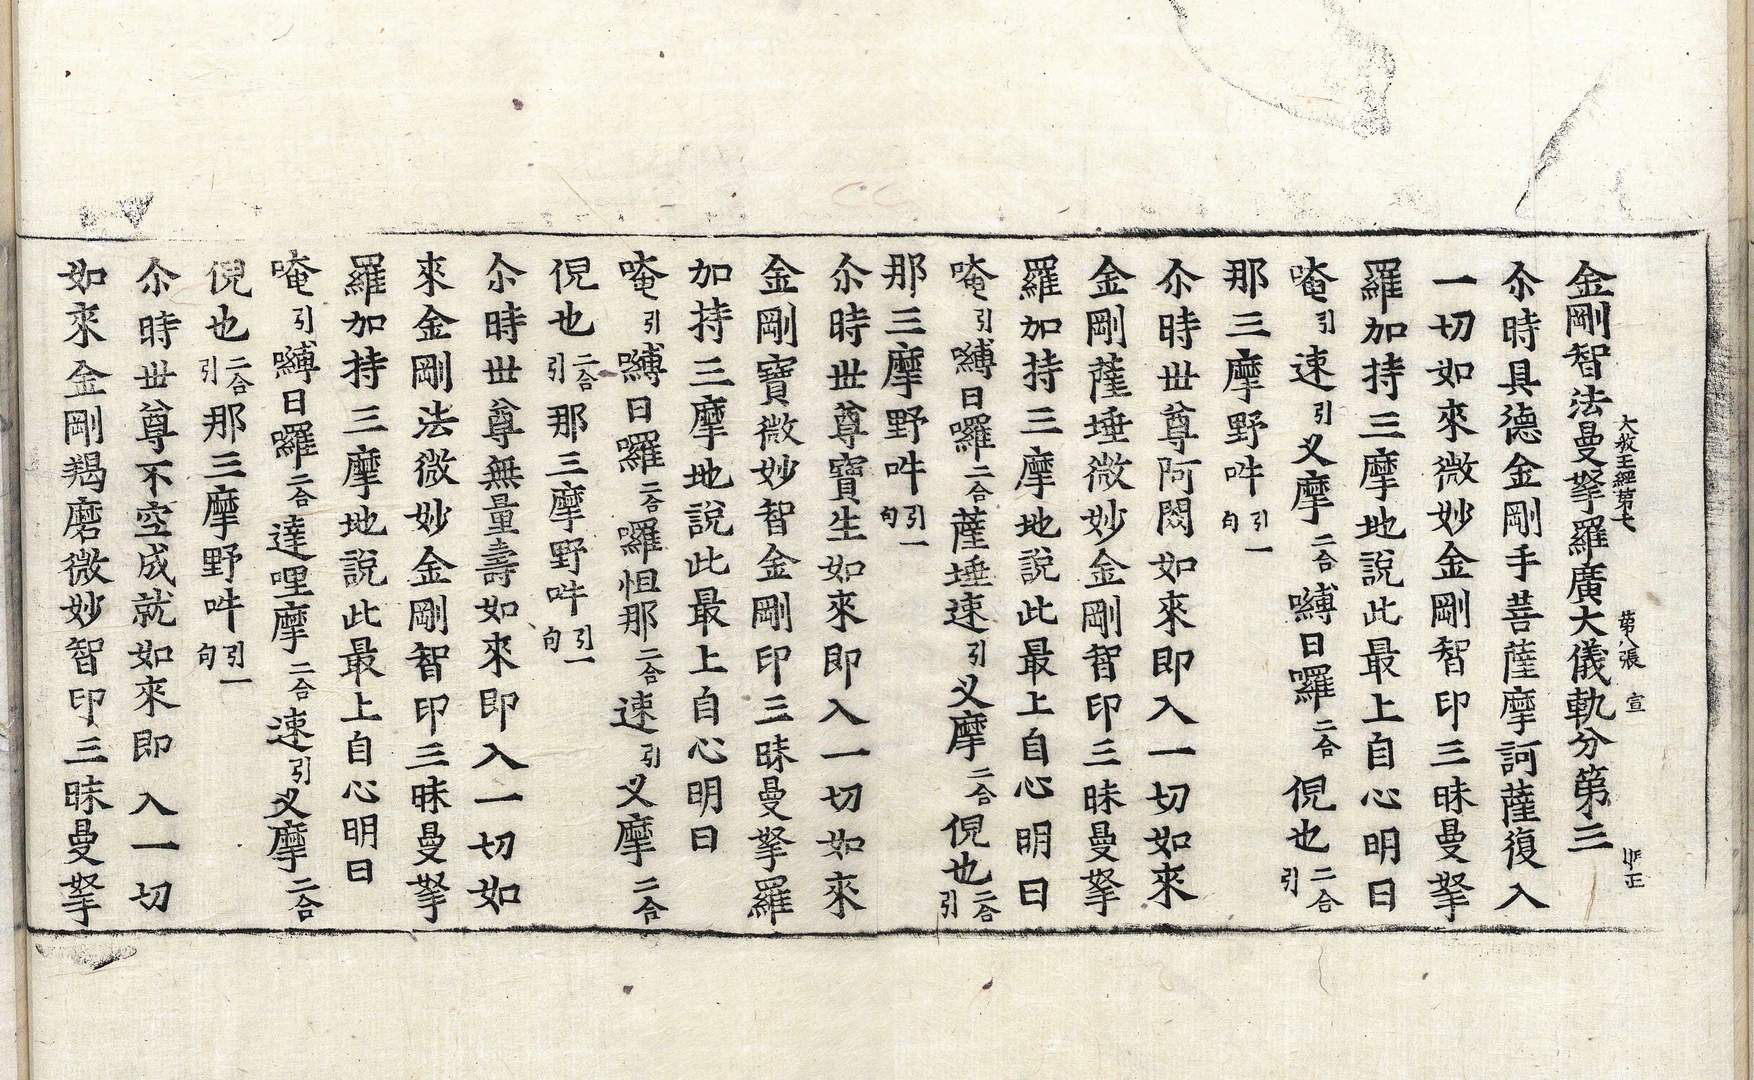 大敎王經第七　第八張　宣　正
金剛智法曼拏羅廣大儀軌分第三
尒時具德金剛手菩薩摩訶薩復入
一切如來微妙金剛智印三昧曼拏
羅加持三摩地說此最上自心明曰
唵引速引叉摩二合嚩日囉二合倪也二合引
那三摩野吽引一句
尒時世尊阿閦如來即入一切如來
金剛薩埵微妙金剛智印三昧曼拏
羅加持三摩地說此最上自心明曰
唵引嚩日囉二合薩埵速引叉摩二合倪也二合引
那三摩野吽引一句
尒時世尊寶生如來即入一切如來
金剛寶微妙智金剛印三昧曼拏羅
加持三摩地說此最上自心明曰
唵引嚩日囉二合囉怛那二合速引叉摩二合
倪也二合引那三摩野吽引一句
尒時世尊無量壽如來即入一切如
來金剛法微妙金剛智印三昧曼拏
羅加持三摩地說此最上自心明曰
唵引嚩日囉二合達哩摩二合速引叉摩二合
倪也二合引那三摩野吽引一句
尒時世尊不空成就如來即入一切
如來金剛羯磨微妙智印三昧曼拏